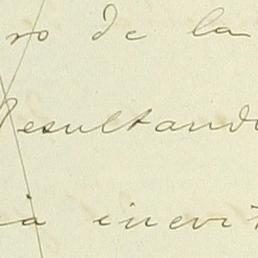 ro de la
Resultando
ia inevit